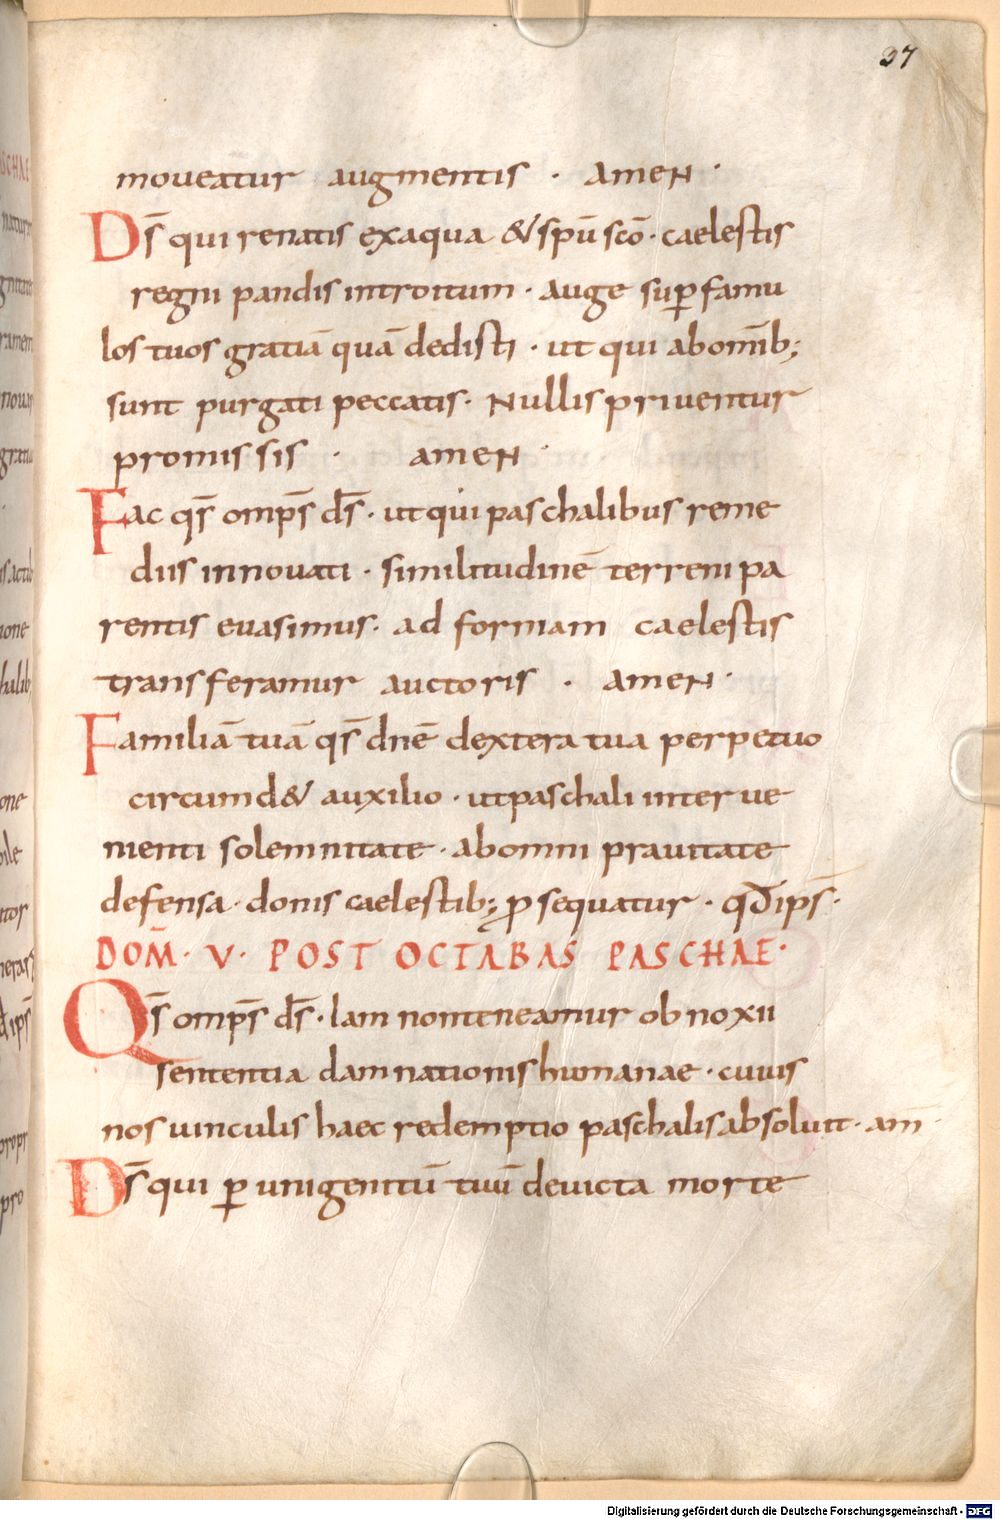 37
moveatur augmentis · AMEN ·
Ds̄ qui renatis exaqua & spū scō · caelestis
regni pandis introitum · Auge sup̄ famu
los tuos gratiā quā dedisti · ut qui abomīb;
sunt purgati peccatis · Nullis priventur
promissis · AMEN ·
Fac qs̄ omps̄ ds̄ · ut qui paschalibus reme
diis innovati · similitudinē terreni pa
rentis evasimus · ad formam caelestis
transferamur auctoris · AMEN ·
Familiā tuā qs̄ dnē dextera tua perpetuo
circumd& auxilio · ut paschali interve
nienti solemnitate · abomni pravitate
defensa · donis caelestib; ꝓsequatur · qđ ips̄ ·
DOM̄ · V · POST OCTABAS PASCHAE ·
Qs̄ omps̄ ds̄ · Iam nonteneamur obnoxii
sententia damnationis humanae · cuius
nos vinculis haec redemptio paschalis absoluit · am̄
Ds̄ qui ꝑ unigenitū tuū devicta morte
Digitalisierung gefördert durch die Deutsche Forschungsgemeinschaft - DFG